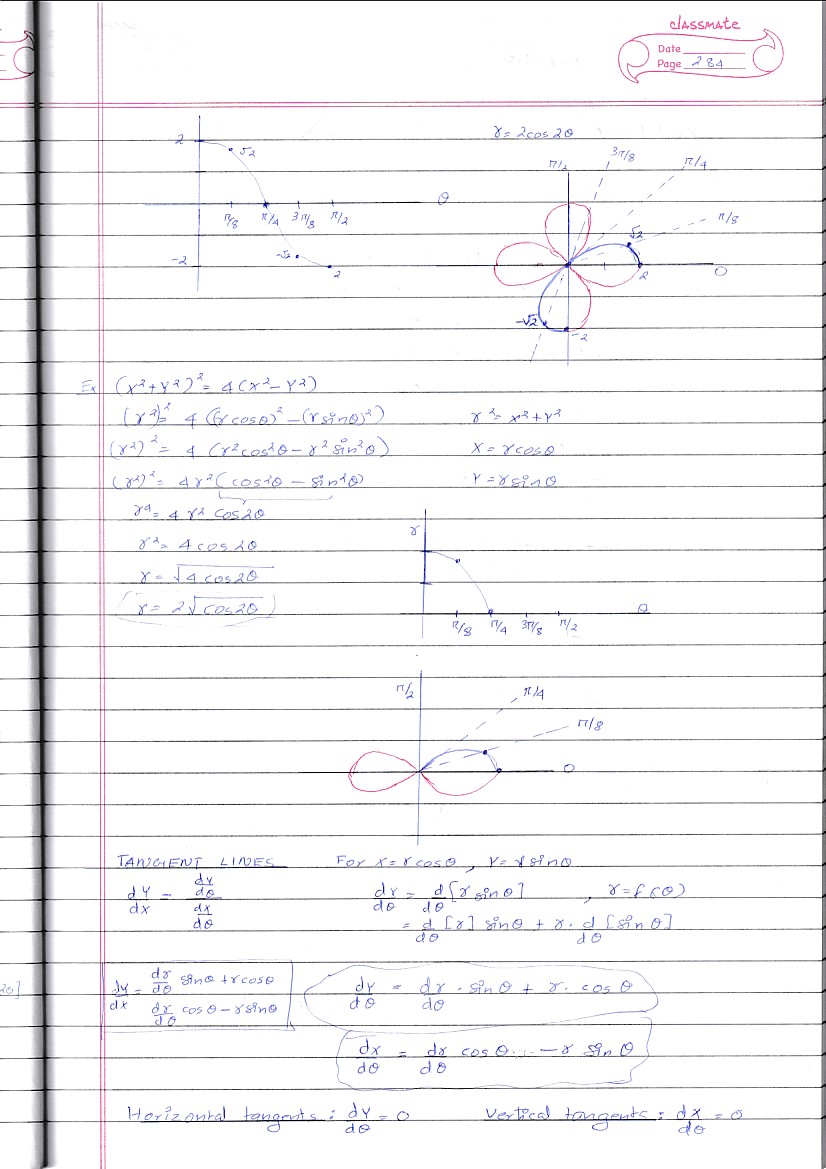 classmate
Date
Page 284
r = 2cos2θ
2
√2
π/8 π/4 3π/8 π/2
θ
-√2
-2
2
π/2
3π/8
π/4
π/8
√2
2
0
-√2
-2
Ex (x²+y²)² = 4(x²-y²)
(r²)² = 4 ((rcosθ)² - (rsinθ)²)
r² = x²+y²
(r²)² = 4 (r²cos²θ - r²sin²θ)
x = rcosθ
(r²)² = 4r²(cos²θ - sin²θ)
y = rsinθ
r⁴ = 4r² cos2θ
r² = 4cos2θ
r = √4cos2θ
r = 2√cos2θ
r
π/8 π/4 3π/8 π/2
θ
π/2
π/4
π/8
0
TANGENT LINES For x = rcosθ , y = rsinθ
dy/dx = (dy/dθ)/(dx/dθ)
dy/dθ = d/dθ [r sinθ] , r = f(θ)
= d/dθ [r] sinθ + r. d/dθ [sinθ]
2θ]
dy/dx = (dr/dθ sinθ + rcosθ)/(dr/dθ cosθ - rsinθ)
dy/dθ = dr/dθ . sinθ + r. cosθ
dx/dθ = dr/dθ cosθ... - r sinθ
Horizontal tangents : dy/dθ = 0 Vertical tangents : dx/dθ = 0